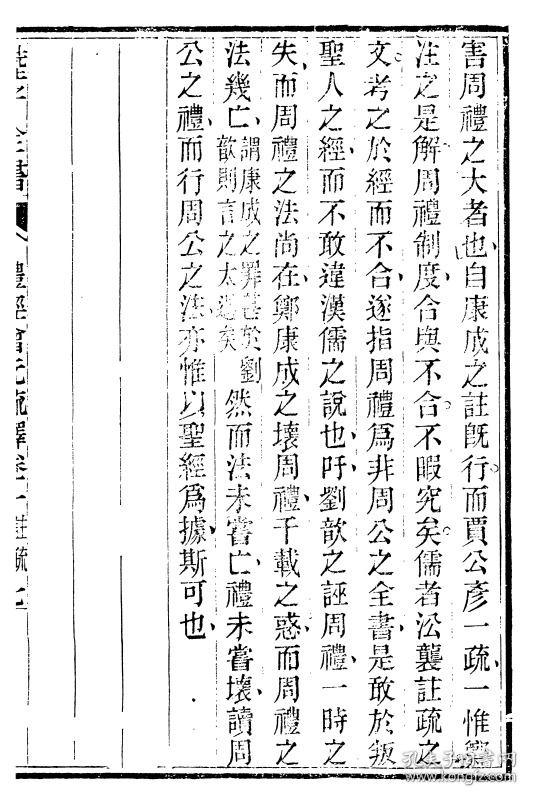 害周禮之大者也自康成之註既行而賈公彥一疏一惟鄭
注之是解周禮制度合與不合不暇究矣儒者沿襲註疏之
文考之於經而不合遂指周禮爲非周公之全書是敢於叛
聖人之經而不敢違漢儒之說也吁劉歆之誣周禮一時之
失而周禮之法尚在鄭康成之壞周禮千載之惑而周禮之
法幾亡謂康成之罪甚於劉歆則言之太過矣然而法未嘗亡禮未嘗壞讀周
公之禮而行周公之法亦惟以聖經爲據斯可也
禮經會元疏釋卷一 註疏 七
孔夫子旧书网
www.kongfz.com